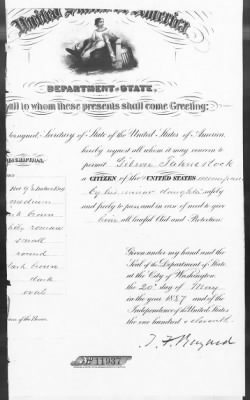 United States of America.
DEPARTMENT OF STATE,
all to whom these presents shall come Greeting:
signed, Secretary of State of the United States of America,
hereby request all whom it may concern to
permit
a CITIZEN of the UNITED STATES accompan
by his minor daughter safely
and freely to pass and in case of need to give
him all lawful Aid and Protection.
medium
brown
roman
small
round
dark brown
dark
oval
re of the Bearer.
Given under my hand and the
Seal of the Department of State
at the City of Washington,
the 20th day of May
in the year 1887 and of the
Independence of the United States
the one hundred & eleventh.
T. F. Bayard